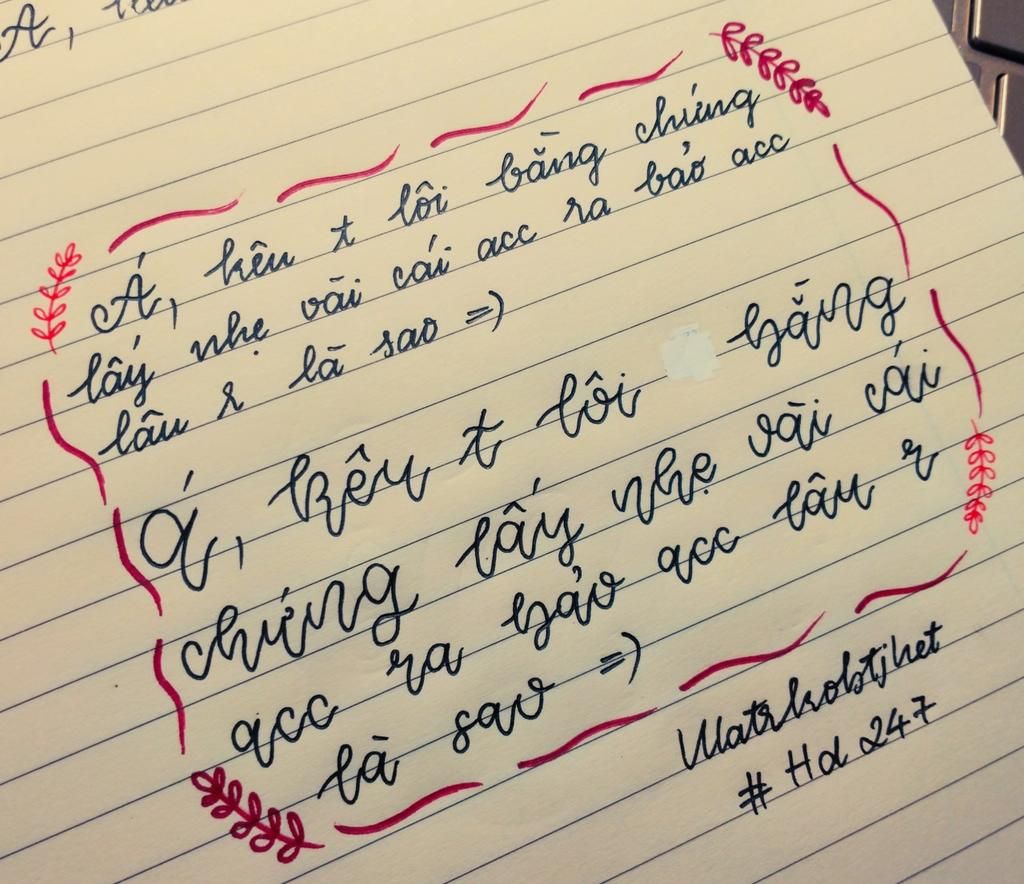 A,
Á, kêu t lôi bằng chứng
lấy nhẹ vài cái acc ra bảo acc
lâu r là sao =)
Á, kêu t lôi bằng
chứng lấy nhẹ vài cái
acc ra bảo acc lâu r
là sao =)
# Hd 247